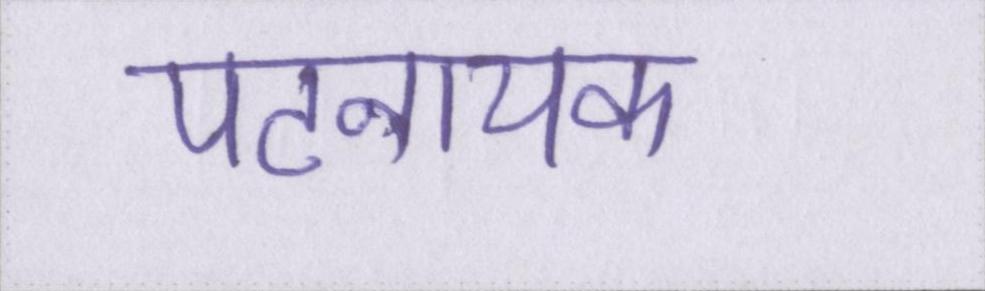 पटनायक